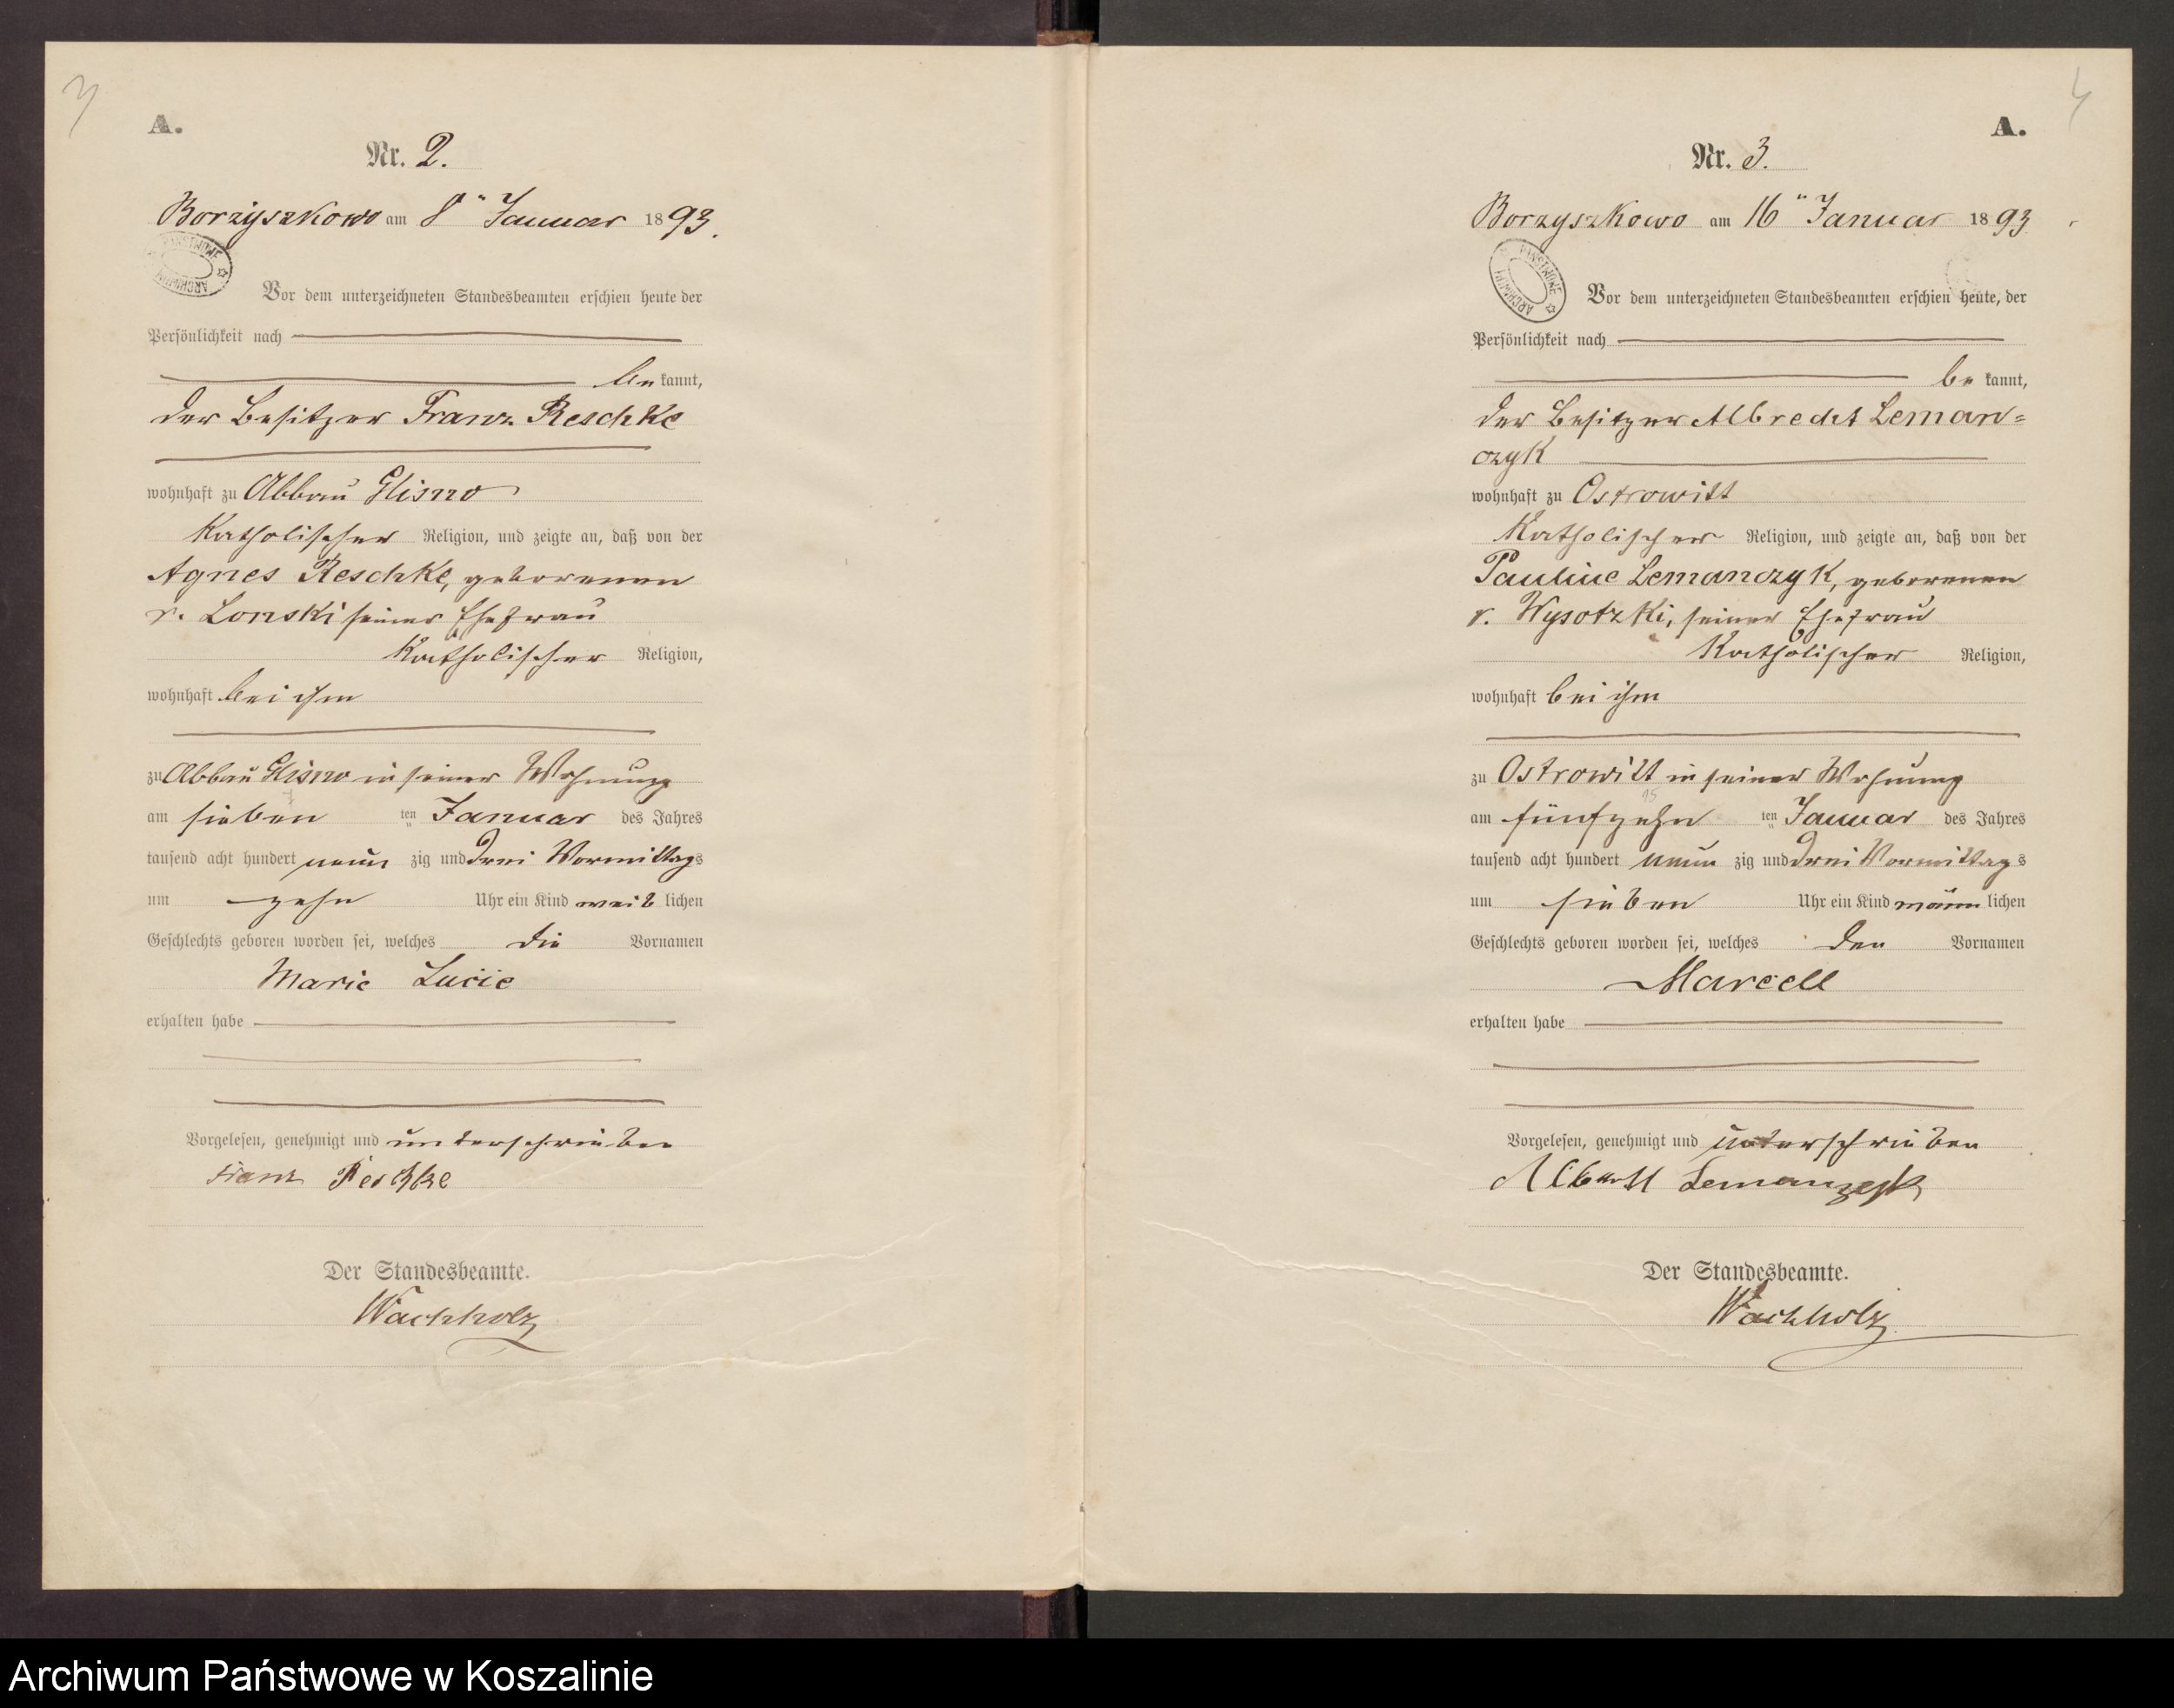 3
A.
Nr. 2.
Borzyszkowo am 8ten Januar 1893.
PAŃSTWOWE ARCHIWUM
Vor dem unterzeichneten Standesbeamten erschien heute der
Persönlichkeit nach
bekannt,
der Besitzer Franz Reschke
wohnhaft zu Abbau Glisno
katholischer Religion, und zeigte an, daß von der
Agnes Reschke, geborenen
v. Lonski seiner Ehefrau
katholischer Religion,
wohnhaft bei ihm
zu Abbau Glisno in seiner Wohnung
am sieben ten Januar des Jahres
tausend acht hundert neun zig und drei Vormittags
um zehn Uhr ein Kind weiblichen
Geschlechts geboren worden sei, welches die Vornamen
Marie Lucie
erhalten habe
Vorgelesen, genehmigt und unterschrieben
Franz Reschke
Der Standesbeamte.
Wachholz
4
A.
Nr. 3.
Borzyszkowo am 16ten Januar 1893
PAŃSTWOWE ARCHIWUM
Vor dem unterzeichneten Standesbeamten erschien heute, der
Persönlichkeit nach
bekannt,
der Besitzer Albrecht Leman=
czyk
wohnhaft zu Ostrowitt
katholischer Religion, und zeigte an, daß von der
Pauline Lemanczyk, geborenen
v. Wysotzki, seiner Ehefrau
katholischer Religion,
wohnhaft bei ihm
zu Ostrowitt in seiner Wohnung
15
am fünfzehn ten Januar des Jahres
tausend acht hundert neun zig und drei Vormittags
um sieben Uhr ein Kind männlichen
Geschlechts geboren worden sei, welches den Vornamen
Marcell
erhalten habe
Vorgelesen, genehmigt und unterschrieben
Albrecht Lemanzcyk
Der Standesbeamte.
Wachholz
Archiwum Państwowe w Koszalinie